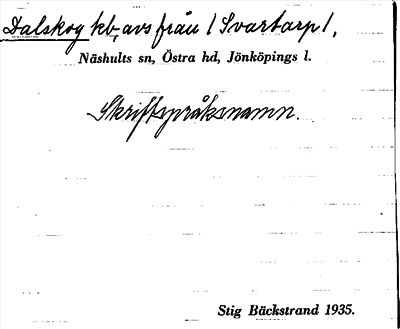 Dalskog kb, avs från 1 Svartarp 1,
Näshults sn, Östra hd, Jönköpings l.
Skriftspråksnamn.
Stig Bäckstrand 1935.